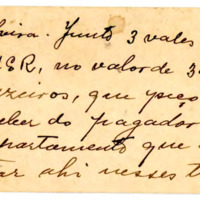 eira. Junto 3 vales
SR, no valor de 3
zeiros, que peço
eber do pagador
partamento que
tar ahi nesses t